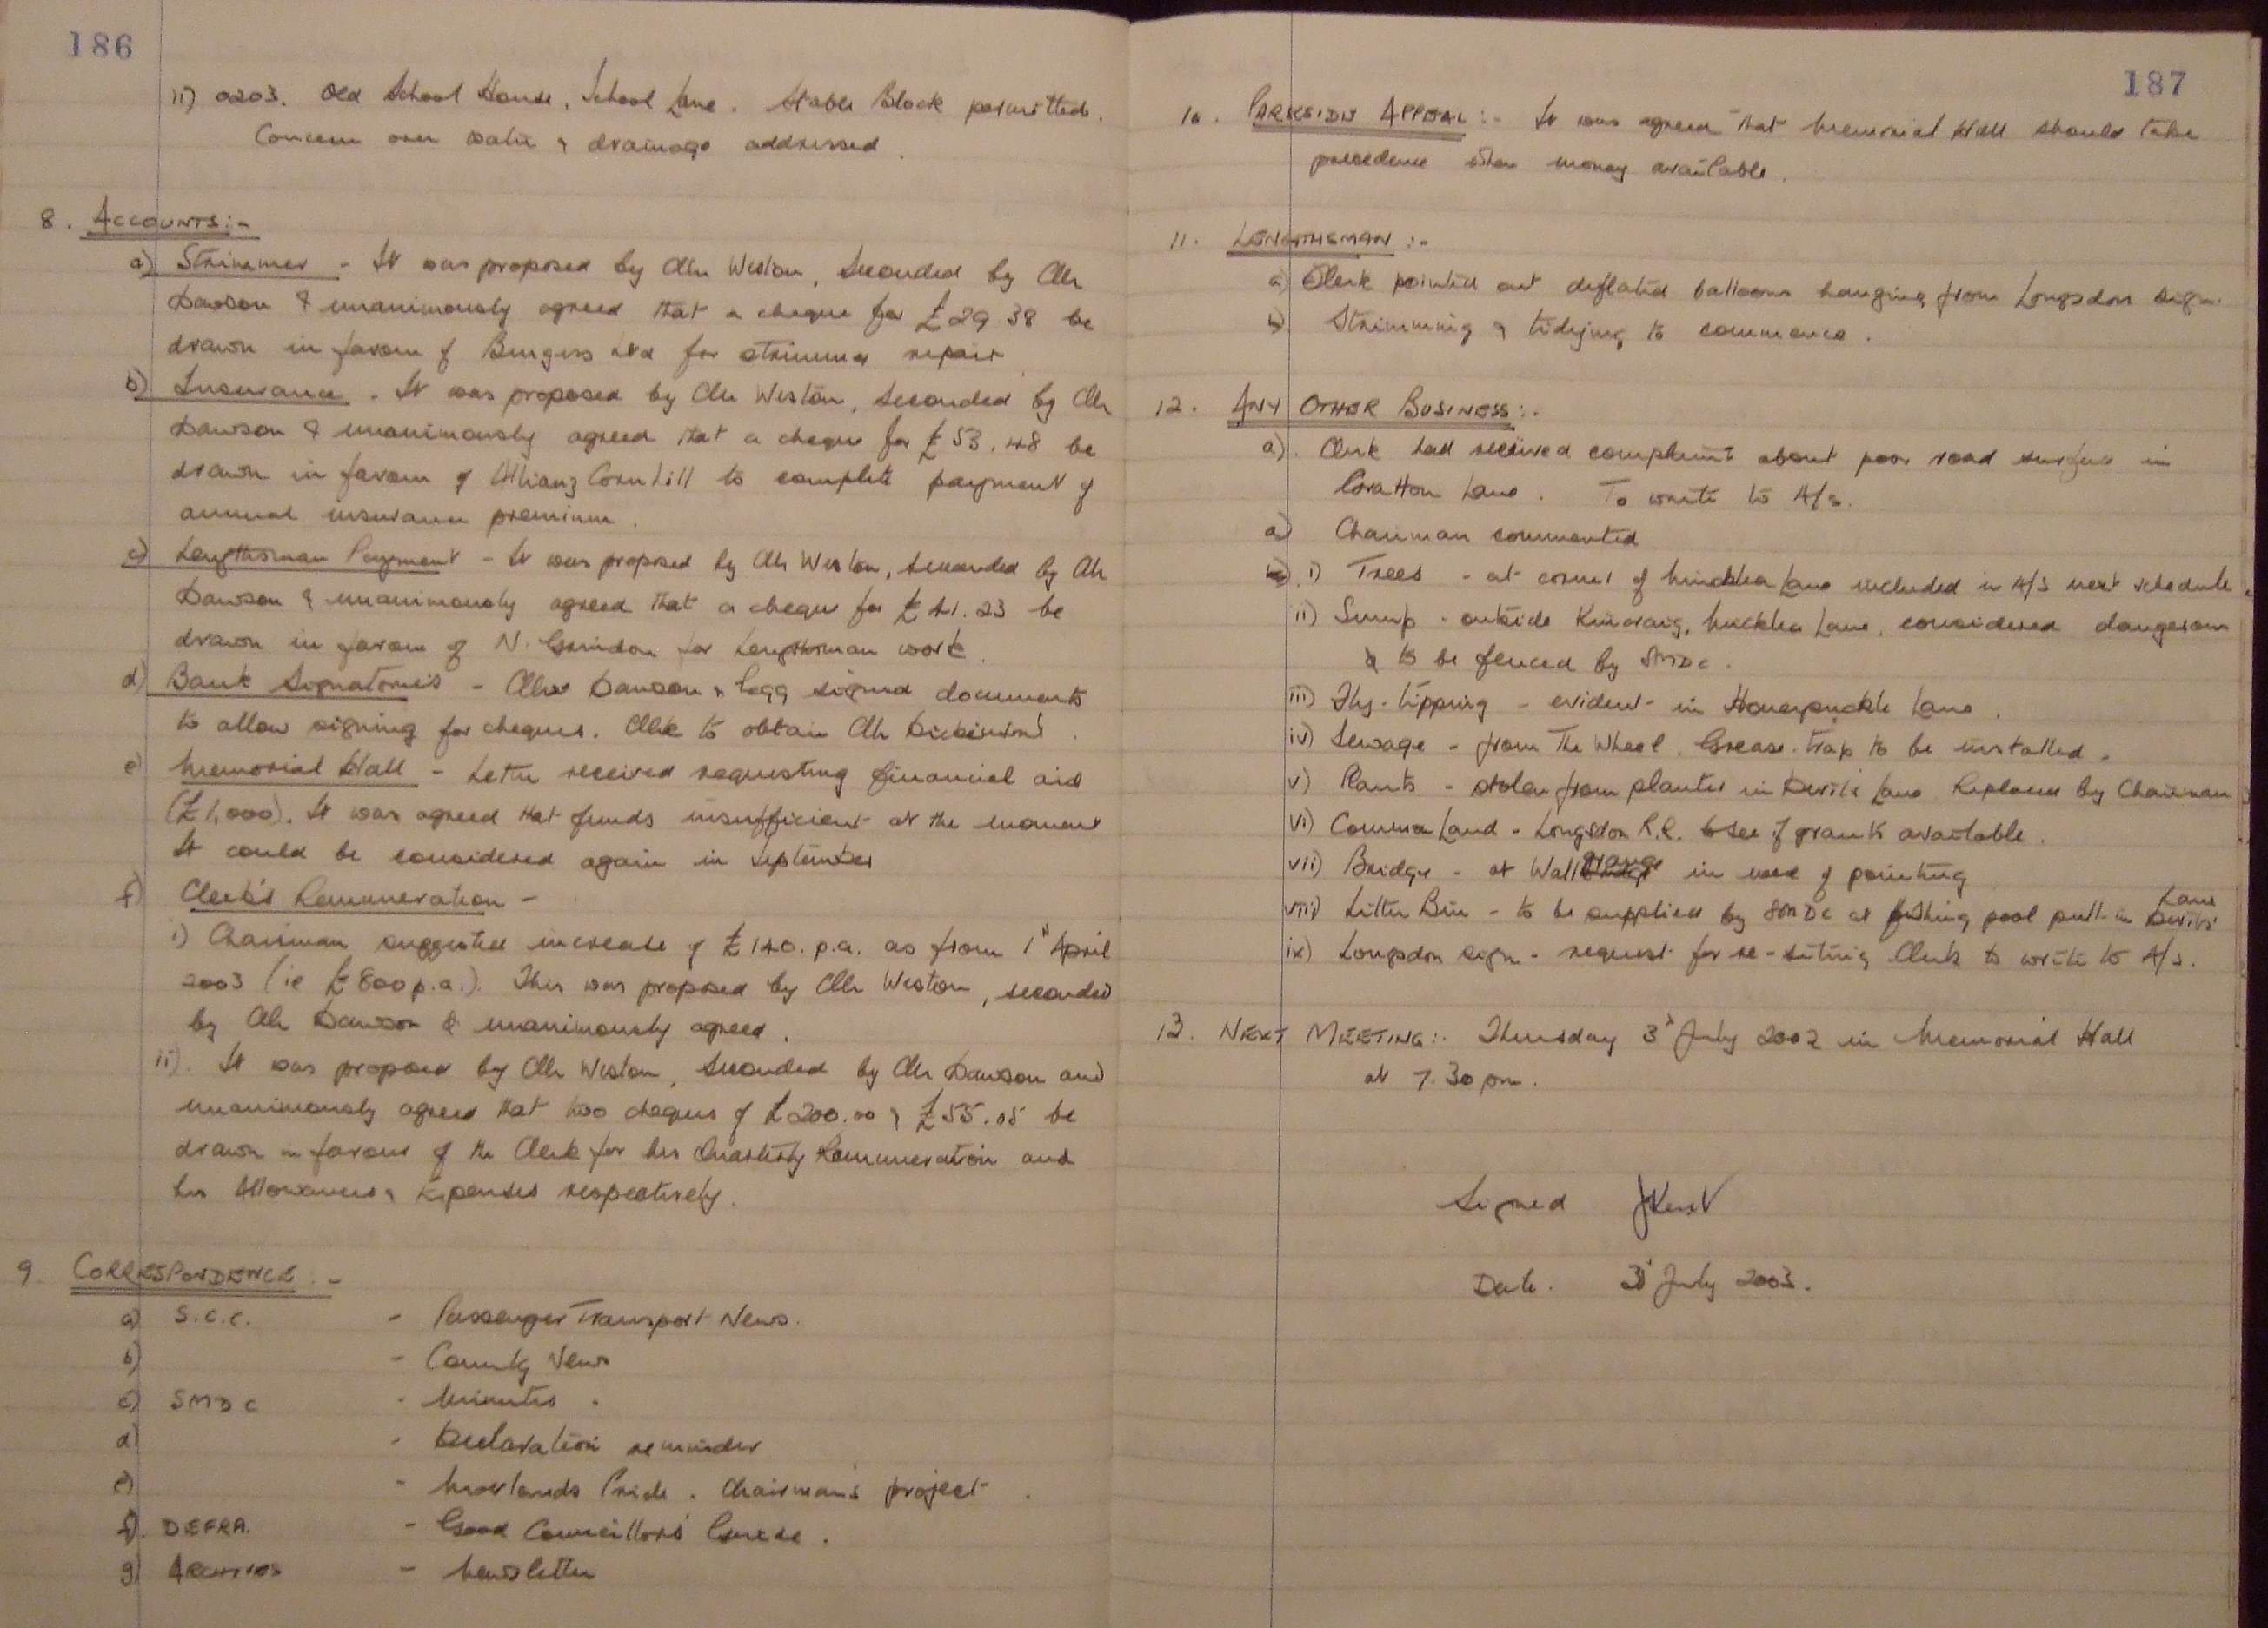 186
ii) 0203. Old School House, School Lane. Stable Block permitted.
Concern over water & drainage addressed.
8. ACCOUNTS:-
a) Strimmer - It was proposed by Cllr Weston, seconded by Cllr
Dawson & unanimously agreed that a cheque for £29 38 be
drawn in favour of Burgess Ltd for strimmer repair
b) Insurance - It was proposed by Cllr Weston, seconded by Cllr
Dawson & unanimously agreed that a cheque for £53.48 be
drawn in favour of Allianz Cornhill to complete payment of
annual insurance premium.
c) Lengthsman Payment - It was proposed by Cllr Weston, seconded by Cllr
Dawson & unanimously agreed that a cheque for £41.23 be
drawn in favour of N. Grindon for Lengthsman work.
d) Bank Signatories - Cllrs Dawson & Pegg signed documents
to allow signing for cheques. Clerk to obtain Cllr Dickinson's.
e) Memorial Hall - Letter received requesting financial aid
(£1,000). It was agreed that funds insufficient at the moment
It could be considered again in September
f) Clerk's Remuneration -
i) Chairman suggested increase of £140. p.a. as from 1st April
2003 (ie £800 p.a.). This was proposed by Cllr Weston, seconded
by Cllr Dawson & unanimously agreed.
ii). It was proposed by Cllr Weston, seconded by Cllr Dawson and
unanimously agreed that two cheques of £200.00 & £55.05 be
drawn in favour of the Clerk for his Quarterly Remuneration and
his Allowances & Expenses respectively.
9. CORRESPONDENCE:-
a) S.C.C. - Passenger Transport News.
b) - County News
c) SMDC - Minutes.
d) - Declaration reminder
e) - Moorlands Pride. Chairman's project.
f). DEFRA. - Good Councillors' Guide.
g) ARCHIVES - Newsletter
187
10. PARKSIDE APPEAL:- It was agreed that Memorial Hall should take
precedence when money available.
11. LENGTHSMAN:-
a) Clerk pointed out deflated balloons hanging from Longsdon sign.
b) Strimming & tidying to commence.
12. ANY OTHER BUSINESS:-
a). Clerk had received complaint about poor road surface in
Gratton Lane. To write to A/S.
a) Chairman commented
i) Trees - at corner of Mucklea Lane included in A/S next schedule.
ii) Sump - outside Kincraig, Mucklea Lane, considered dangerous
& to be fenced by SMDC.
iii) Fly-tipping - evident in Honeypuckle Lane.
iv) Sewage - from The Wheel. Grease-trap to be installed.
v) Plants - stolen from planter in Devil's Lane Replaced by Chairman
vi) Common Land - Longsdon P.C. to see if grants available.
vii) Bridge - at Wallgrange in need of pointing
viii) Litter Bin - to be supplied by SMDC at fishing pool pull-in Devil's Lane
ix) Longsdon sign - request for re-siting Clerk to write to A/S.
13. NEXT MEETING:- Thursday 3rd July 2002 in Memorial Hall
at 7.30pm.
Signed JKent
Date. 3rd July 2003.